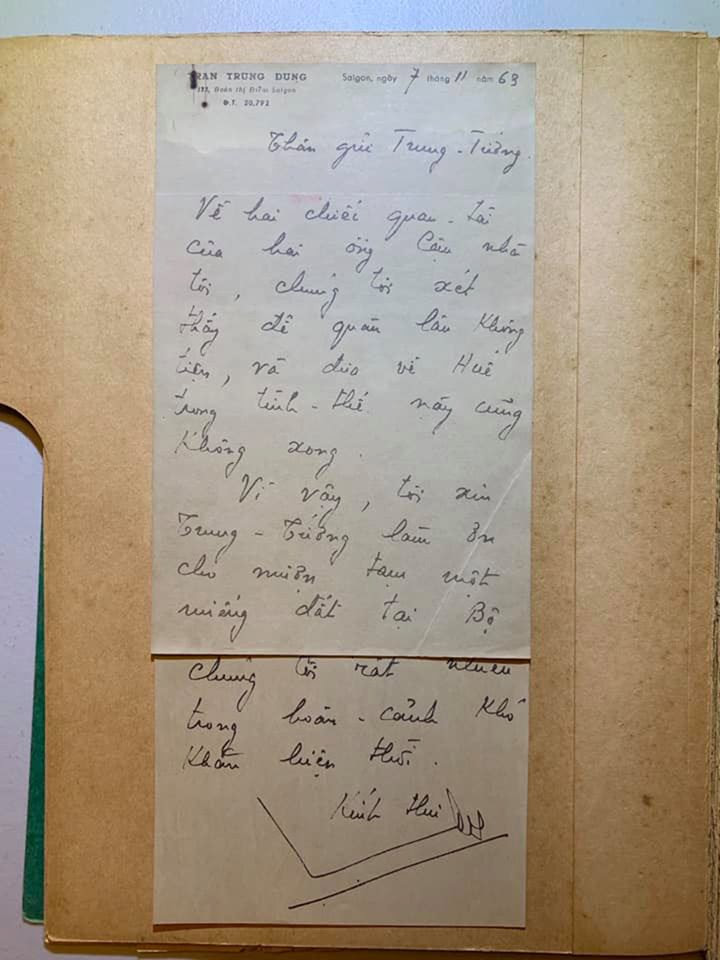 TRAN TRUNG DUNG
Saigon, ngày 7 tháng 11 năm 63
Đoàn thị Điểm Saigon
Đ.T. 20,792
Thân gửi Trung-Tướng.
Về hai chiếc quan-tài
của hai ông Cậu nhà
tôi, chúng tôi xét
thấy để quán lâu không
tiện, và đưa về Huế
trong tình-thế này cũng
không xong.
Vì vậy, tôi xin
Trung-Tướng làm ơn
cho mượn tạm một
miếng đất tại Bộ
chúng tôi rất nhiều
trong hoàn-cảnh khó
khăn hiện thời.
Kính thư